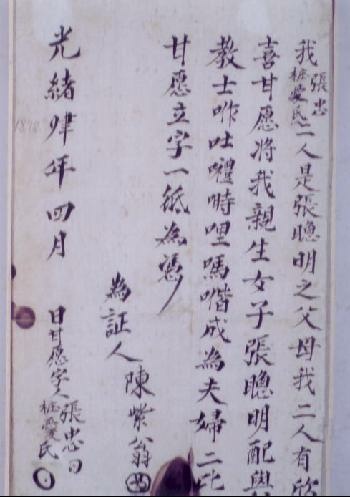 我張忠愛氏二人是張聰明之父母我二人有欣
喜甘愿將我親生女子張聰明配與
教士咋吐哩嗎喈成為夫婦二比
甘愿立字一紙為憑
為証人陳紫翁
光緒肆年四月 日甘愿字人張忠愛氏
1878